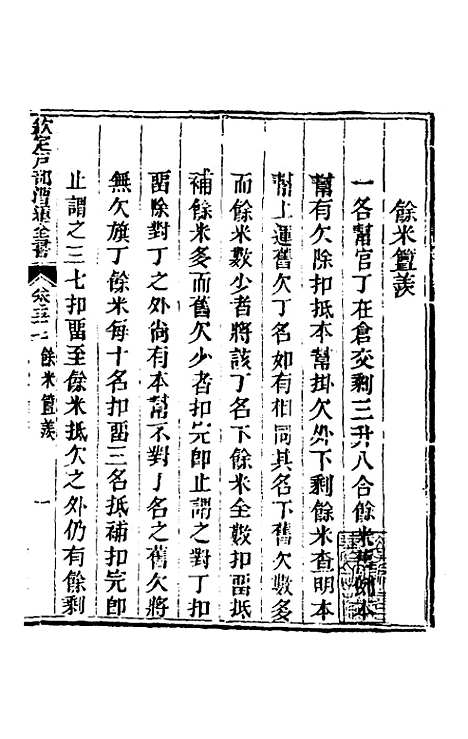 餘米簋羨
一各幫官丁在倉交剩三升八合餘米舊例本
幫有欠除扣抵本幫掛欠外下剩餘米查明本
幫上運舊欠丁名如有相同其名下舊欠數多
而餘米數少者將該丁名下餘米全數扣畱抵
補餘米多而舊欠少者扣完卽止謂之對丁扣
畱除對丁之外尚有本幫不對丁名之舊欠將
無欠旗丁餘米每十名扣畱三名抵補扣完卽
止謂之三七扣畱至餘米抵欠之外仍有餘剩
欽定戶部漕運全書 卷 餘米簋羨 一